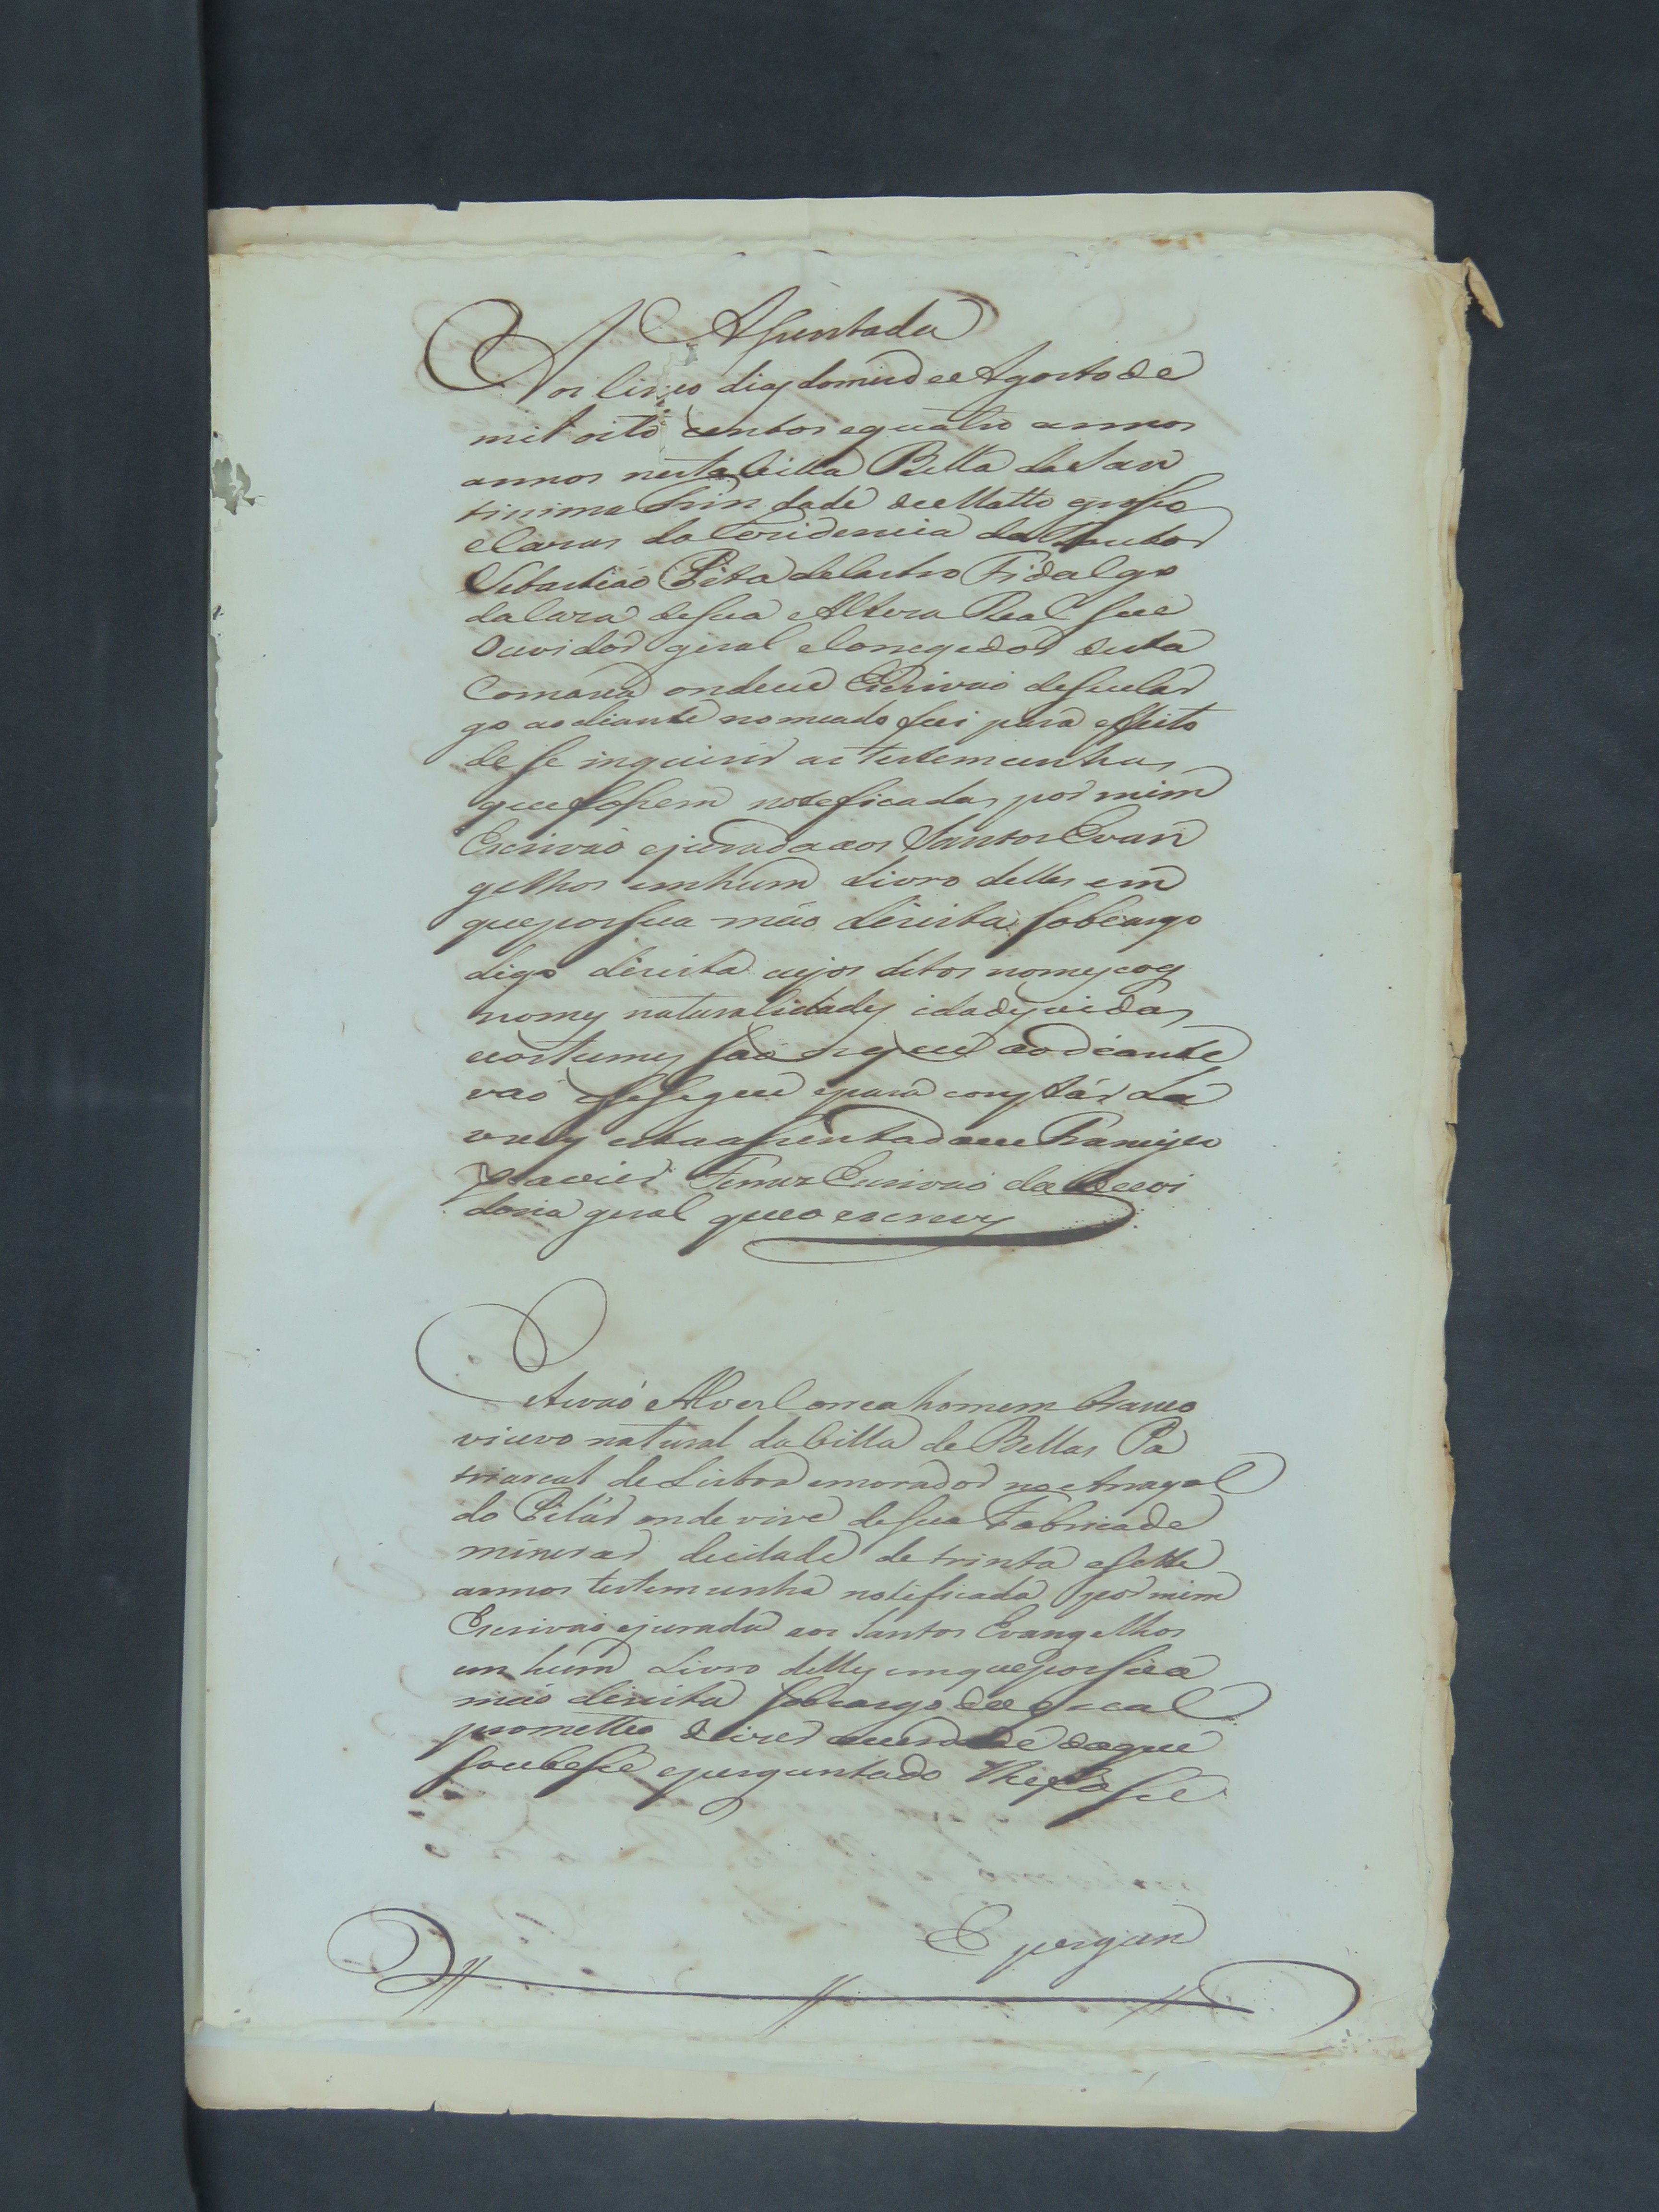 Assentada
Aos sinco dias domes de Agosto de
mil oito centos equatro annos
annos nesta Villa Bella da San
tissima Trindade de Matto grosso
e Cazas da Rezidencia do Doutor
Sebastiaõ Pita de Castro Fidalgo
da Caza de sua Alteza Real seu
Ouvidor geral e Corregedor desta
Comarca onde eu Escrivaõ de seu Car
go ao diante nomeado fui para effeito
de se inquirir as testemunhas
que foseem noteficadas por mim
Escrivaõ ejurada aos Santos Evan
gelhos em hum Livro delles em
que por sua maõ direita sob cargo
digo direita cujos ditos nomes cog
nomes naturalidades idades vidas
costumes saõ os que ao diante
vaõ e se segue epara constár La
vrey esta assentada eu Francisco
Xavier Ferraz Escrivaõ da Ouvi
doria geral que o escrevy
Estevaõ Alves Correa homem branco
viuvo natural da Villa de Bellas Pa
triarcal de Lisboa emorador no Arrayal
do Pilár onde vive de sua Fabrica de
minerar de idade de trinta esette
annos testemunha notificada por mim
Escrivaõ ejurada aos Santos Evangelhos
em hum Livro delles em que por sua
maõ direita sob cargo de o qual
prometteo dizer averdade do que
soubesse eperguntado lhe fosse
E pergun